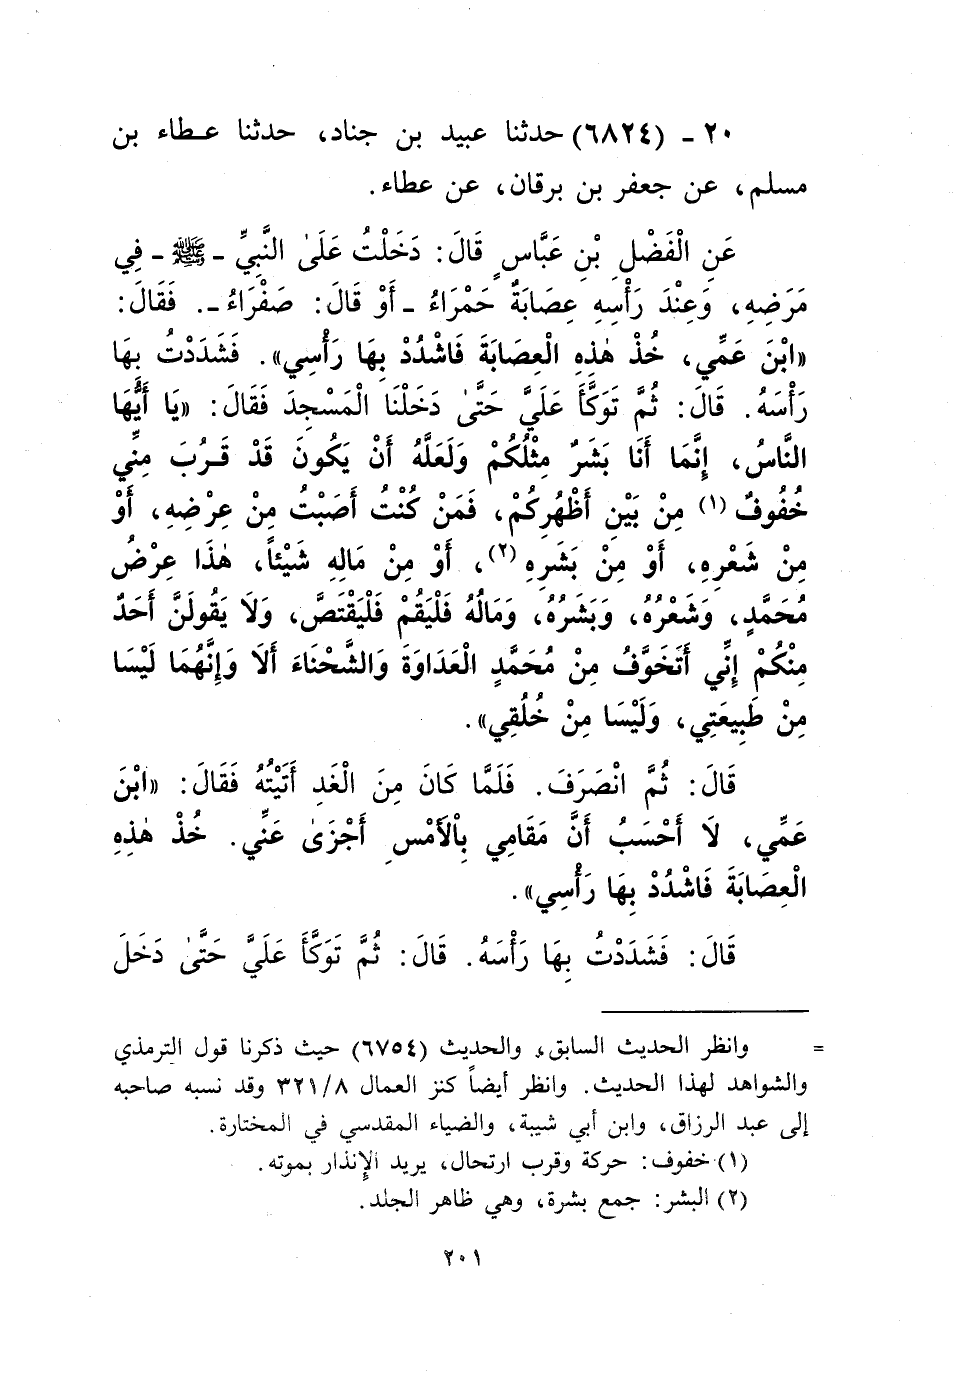 ٢٠ ـ (٦٨٢٤) حدثنا عبيد بن جناد، حدثنا عطاء بن
مسلم، عن جعفر بن برقان، عن عطاء.
عَنِ الْفَضْلِ بْنِ عَبَّاسٍ قَالَ: دَخَلْتُ عَلَىٰ النَّبِيِّ ـ ﷺ ـ فِي
مَرَضِهِ، وَعِنْدَ رَأْسِهِ عِصَابَةٌ حَمْرَاءُ ـ أَوْ قَالَ: صَفْرَاءُ ـ. فَقَالَ:
«ابْنَ عَمِّي، خُذْ هٰذِهِ الْعِصَابَةَ فَاشْدُدْ بِهَا رَأْسِي». فَشَدَدْتُ بِهَا
رَأْسَهُ. قَالَ: ثُمَّ تَوَكَّأَ عَلَيَّ حَتَّىٰ دَخَلْنَا الْمَسْجِدَ فَقَالَ: «يَا أَيُّهَا
النَّاسُ، إِنَّمَا أَنَا بَشَرٌ مِثْلُكُمْ وَلَعَلَّهُ أَنْ يَكُونَ قَدْ قَرُبَ مِنِّي
خُفُوفٌ (١) مِنْ بَيْنِ أَظْهُرِكُمْ، فَمَنْ كُنْتُ أَصَبْتُ مِنْ عِرْضِهِ، أَوْ
مِنْ شَعْرِهِ، أَوْ مِنْ بَشَرِهِ (٢)، أَوْ مِنْ مَالِهِ شَيْئاً، هٰذَا عِرْضُ
مُحَمَّدٍ، وَشَعْرُهُ، وَبَشَرُهُ، وَمَالُهُ فَلْيَقُمْ فَلْيَقْتَصَّ، وَلَا يَقُولَنَّ أَحَدٌ
مِنْكُمْ إِنِّي أَتَخَوَّفُ مِنْ مُحَمَّدٍ الْعَدَاوَةَ وَالشَّحْنَاءَ أَلَا وَإِنَّهُمَا لَيْسَا
مِنْ طَبِيعَتِي، وَلَيْسَا مِنْ خُلُقِي».
قَالَ: ثُمَّ انْصَرَفَ. فَلَمَّا كَانَ مِنَ الْغَدِ أَتَيْتُهُ فَقَالَ: «ابْنَ
عَمِّي، لَا أَحْسَبُ أَنَّ مَقَامِي بِالْأَمْسِ أَجْزَىٰ عَنِّي. خُذْ هٰذِهِ
الْعِصَابَةَ فَاشْدُدْ بِهَا رَأْسِي».
قَالَ: فَشَدَدْتُ بِهَا رَأْسَهُ. قَالَ: ثُمَّ تَوَكَّأَ عَلَيَّ حَتَّىٰ دَخَلَ
= وانظر الحديث السابق، والحديث (٦٧٥٤) حيث ذكرنا قول الترمذي
والشواهد لهذا الحديث. وانظر أيضاً كنز العمال ٣٢١/٨ وقد نسبه صاحبه
إلى عبد الرزاق، وابن أبي شيبة، والضياء المقدسي في المختارة.
(١) خفوف: حركة وقرب ارتحال، يريد الإنذار بموته.
(٢) البشر: جمع بشرة، وهي ظاهر الجلد.
٢٠١